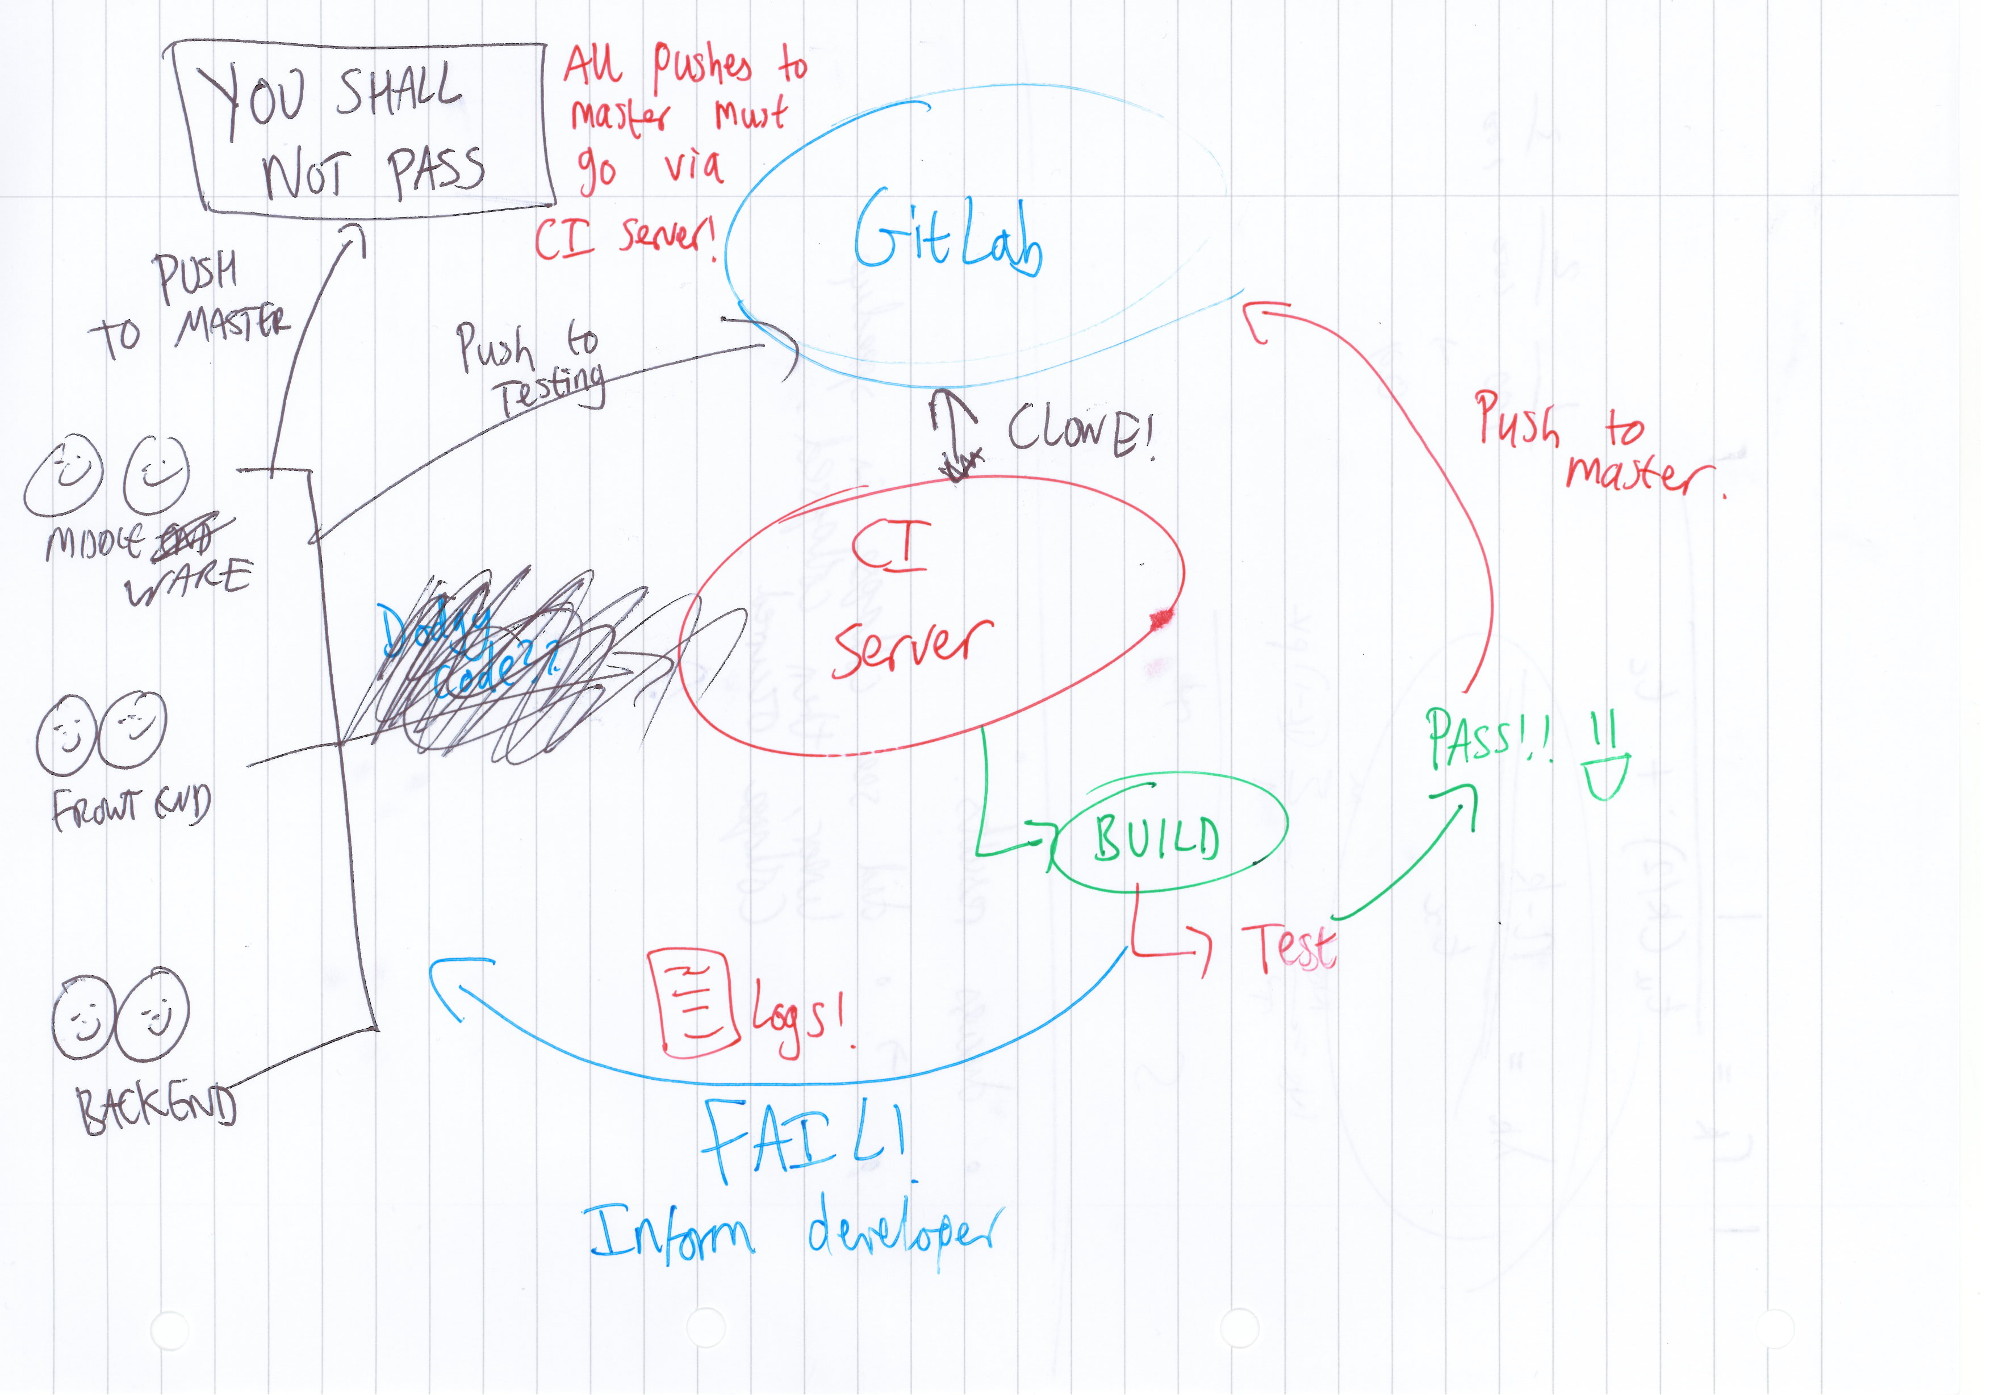 YOU SHALL
NOT PASS
All pushes to
master must
go via
CI server!
GitLab
PUSH
TO MASTER
Push to
Testing
CLONE!
Push to
master.
MIDDLE
WARE
CI
server
Dodgy
Code??
PASS!!
FRONT END
BUILD
Test
Logs!
BACKEND
FAIL!
Inform developer